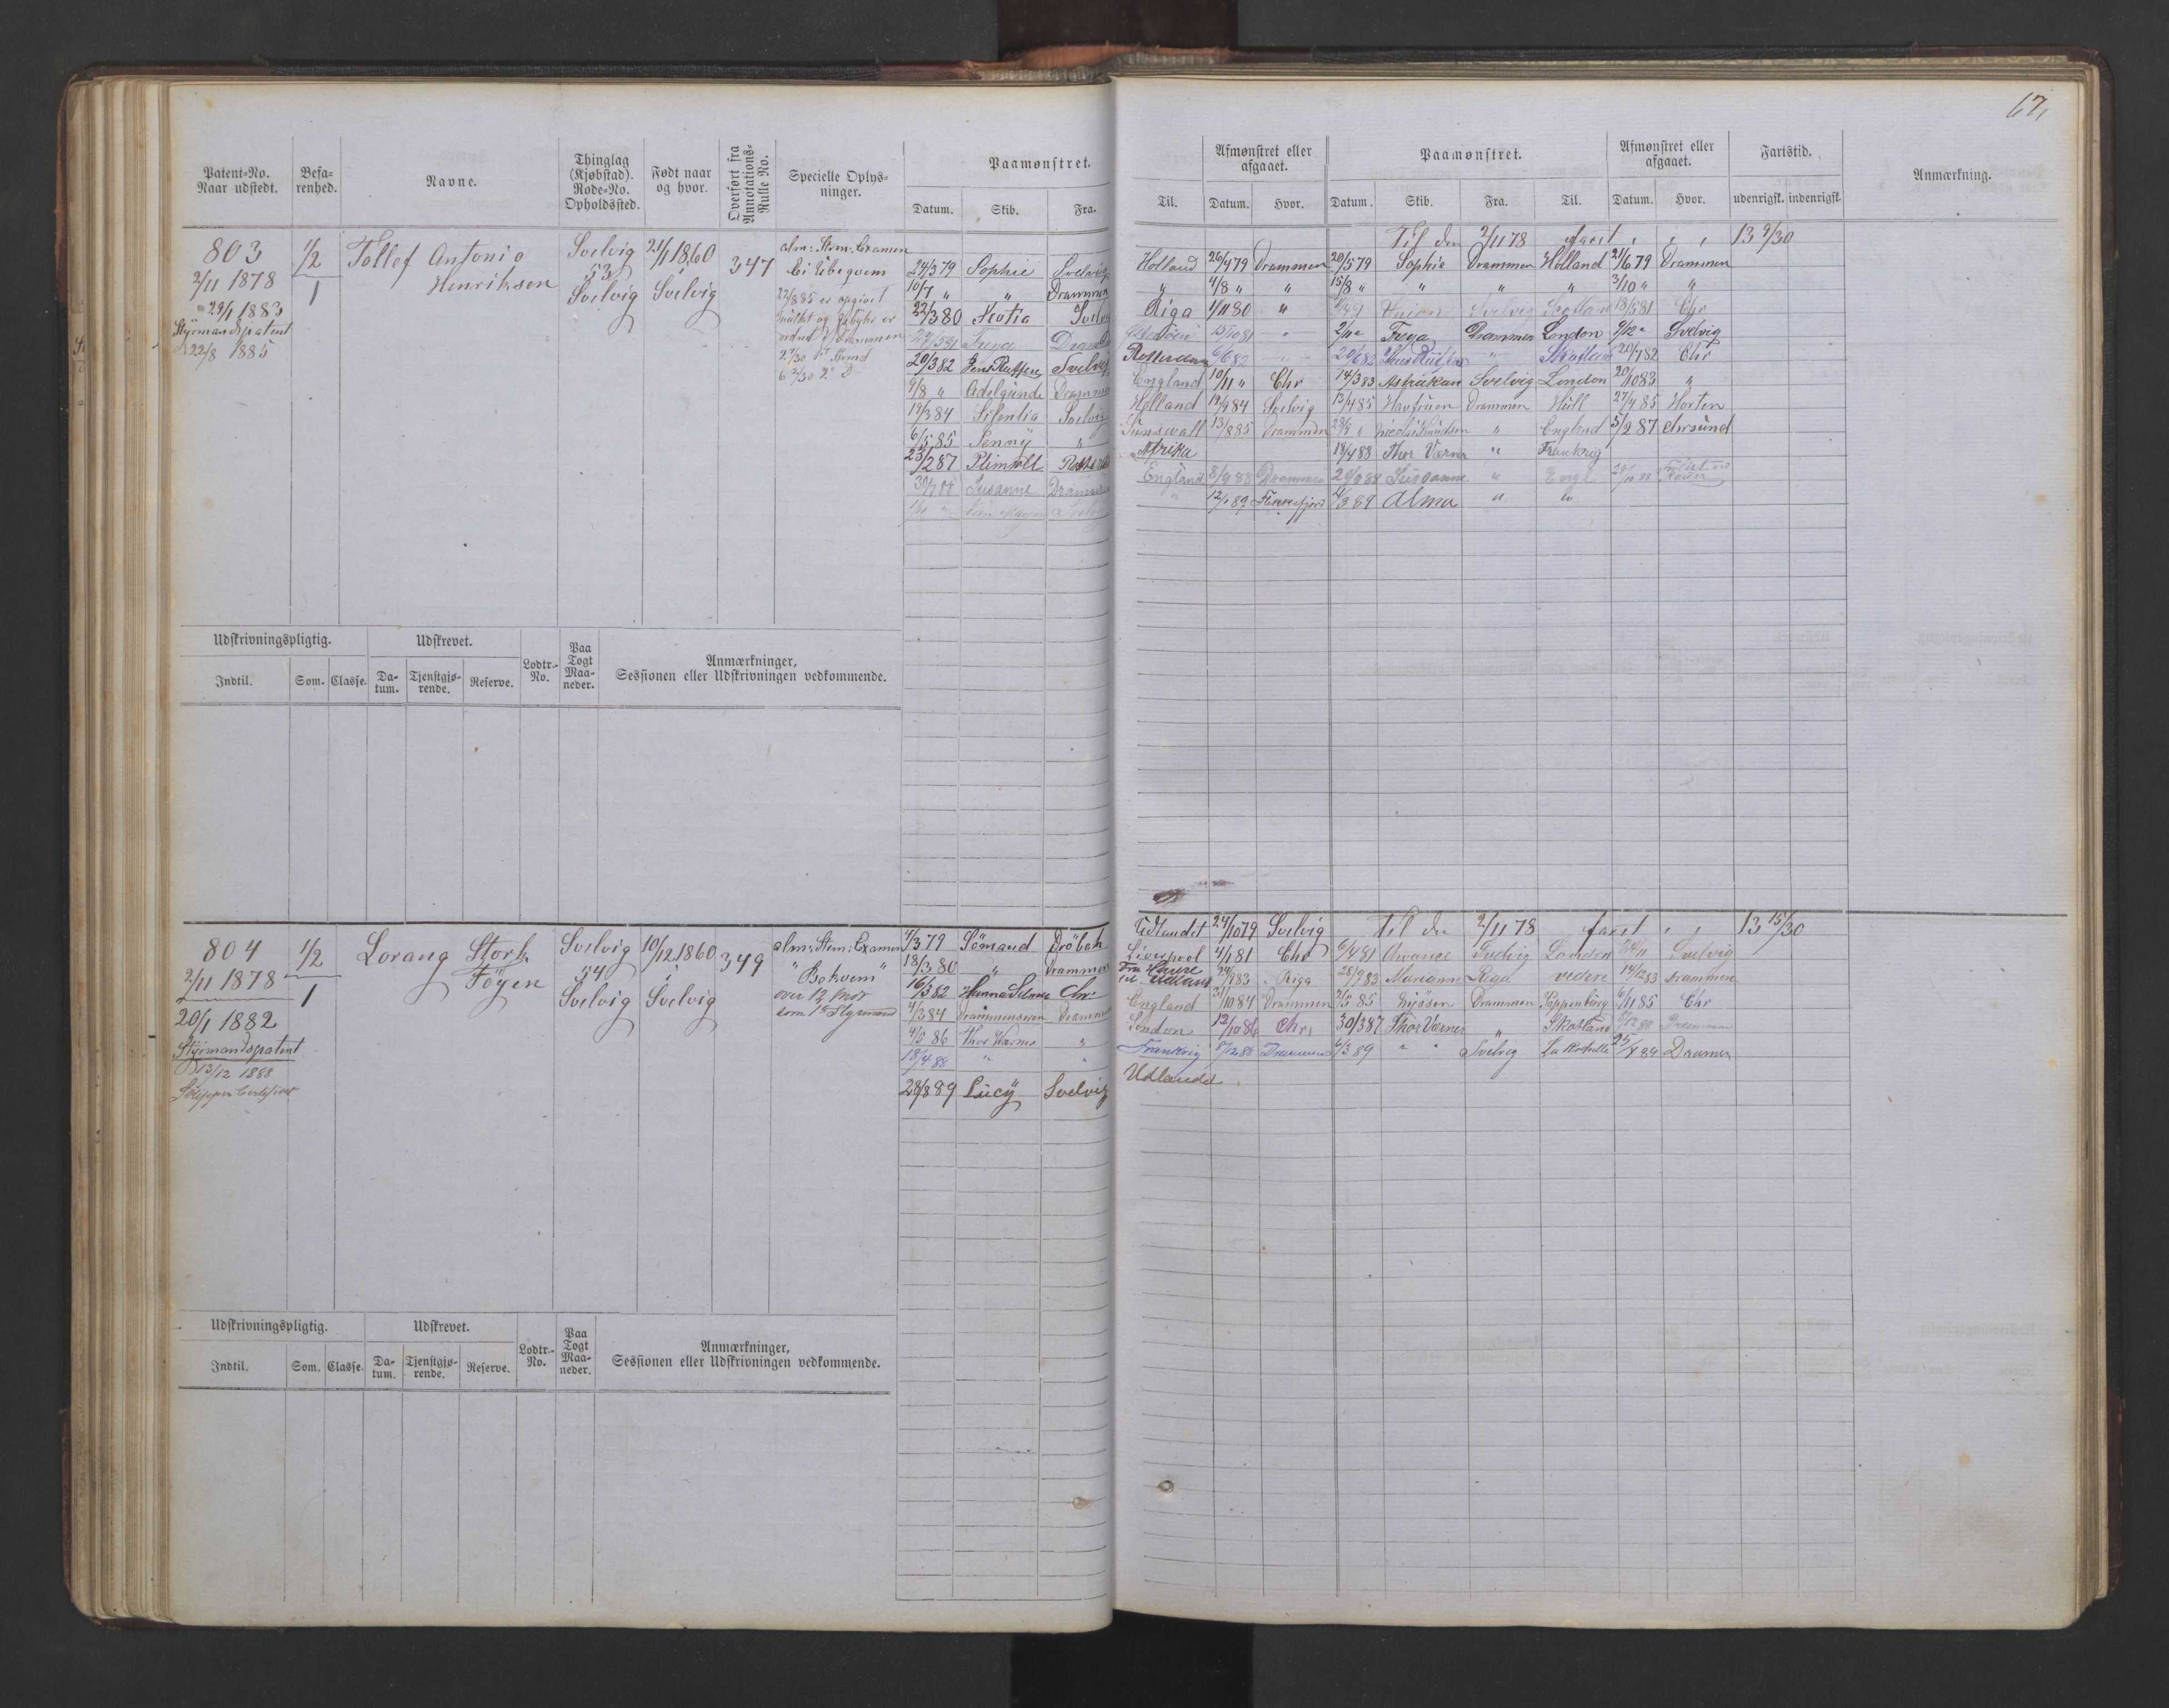 67,
Patent-No. Naar udstedt.
Befarenhed.
Navne.
Thinglag (Kjøbstad). Rode-No. Opholdssted.
Født naar og hvor.
Overført fra Annotations-Rulle No.
Specielle Oplysninger.
Paamønstret.
Datum. Skib. Fra. Til.
Afmønstret eller afgaaet.
Datum. Hvor.
Paamønstret.
Datum. Skib. Fra. Til.
Afmønstret eller afgaaet.
Datum. Hvor.
Fartstid.
udenrigsk. indenrigsk.
Anmærkning.
803
2/11 1878
29/1 1883
Styrmandspatent
22/8 1885
1/2
1
Tollef Antonio
Henriksen
Svelvig
53
Svelvig
21/1 1860
Svelvig
347
alm: Strm: Examen
22/8 85 er opgivet
Til den 2/11 78 faret " " 13 9/30
24/3 79 Sophie Svelvig Holland 26/4 79 Drammen 20/5 79 Sophie Drammen Holland 21/6 79 Drammen
10/7 " " Drammen " 4/8 " " 15/8 " " " " 3/10 " "
22/3 80 Scotia Svelvig Riga 1/11 80 " Union Svelvig Scotland Chr
Freya 2/11 " Freya Drammen London 9/12 " Svelvig
20/3 82 Jens Ruffen Svelvig Rotterdam 6/6 82 20/6 82 Skotland 20/7 82 Chr
9/8 " Adelgunde Drammen England 10/11 " Chr 14/3 83 Astrakan Svelvig London 20/10 83 "
19/3 84 Silentia Svelvig Holland 19/9 84 Svelvig 13/4 85 Havfruen Drammen Hull 27/7 85 Horten
6/5 85 Jenny " Sunswall 13/8 85 Drammen " England 5/2 87 Chrsund
23/2 87 Plimsoll Afrika 18/4 88 Thor Værner " Frankrig
Susanne Drammen England Drammen Susanne " Engl.
" Alma " "
Udskrivningspligtig.
Indtil. Som. Classe.
Udskrevet.
Datum. Tjenstgjørende. Reserve.
Lodtr.-No.
Paa Togt Maaneder.
Anmærkninger, Sessionen eller Udskrivningen vedkommende.
804
2/11 1878
20/1 1882
Styrmandspatent
13/12 1888
Skipper Certificat
1/2
1
Lorang Stork
Föyen
Svelvig
54
Svelvig
10/12 1860
Svelvig
349
alm: Strm: Examen
"Bekvem"
over 12 Mdr
som 1e Styrmand
4/3 79 Sömand Dröbak Udlandet 24/10 79 Svelvig Til den 2/11 78 faret " " 13 15/30
18/3 80 " Drammen Liverpool 4/1 81 Chr 6/4 81 Avance Svelvig London 24/11 Svelvig
16/3 82 Hanna Selma Chr: Fra Havre til Udland Riga 28/7 83 Mariane Riga videre 14/12 83 Drammen
Drammenseren Drammen England 31/10 84 Drammen Drammen Pappenburg 6/11 85 Chr
Thor Værner " London 12/10 86 Chr. 30/3 87 Thor Værner " Skotland
18/4 88 " " Frankrig 8/12 88 Drammen 6/3 89 " " Svelvig La Rochelle Drammen
28/8 89 Lucy Svelvig Udlandet
Udskrivningspligtig.
Indtil. Som. Classe.
Udskrevet.
Datum. Tjenstgjørende. Reserve.
Lodtr.-No.
Paa Togt Maaneder.
Anmærkninger, Sessionen eller Udskrivningen vedkommende.